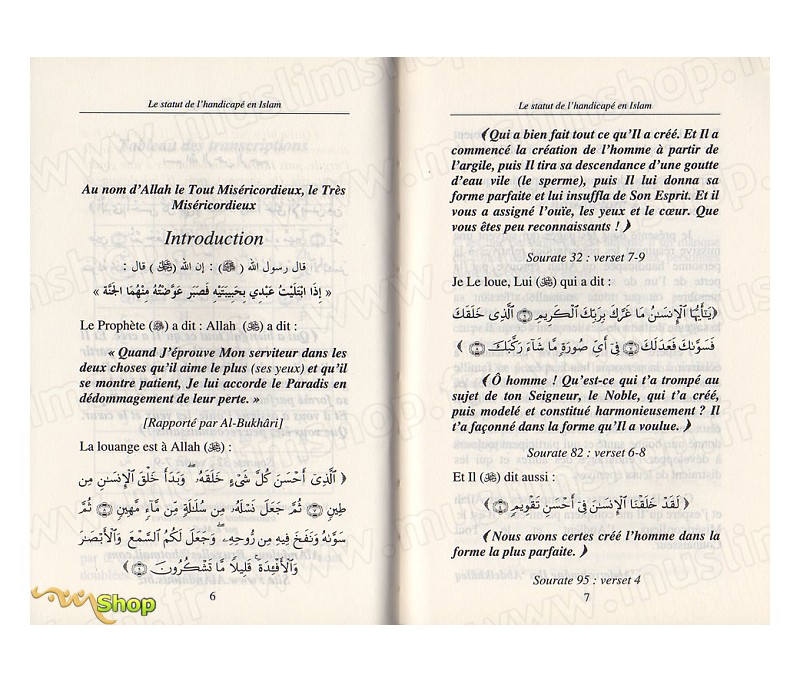 Le statut de l'handicapé en Islam
Au nom d'Allah le Tout Miséricordieux, le Très
Miséricordieux
Introduction
قال رسول الله (ﷺ) : إن الله (ﷻ) قال :
« إِذَا ابْتَلَيْتُ عَبْدِي بِحَبِيبَتَيْهِ فَصَبَر عَوَّضْتُهُ مِنْهُمَا الجَنَّة »
Le Prophète (ﷺ) a dit : Allah (ﷻ) a dit :
« Quand J'éprouve Mon serviteur dans les
deux choses qu'il aime le plus (ses yeux) et qu'il
se montre patient, Je lui accorde le Paradis en
dédommagement de leur perte. »
[Rapporté par Al-Bukhâri]
La louange est à Allah (ﷻ) :
﴿ ٱلَّذِىٓ أَحْسَنَ كُلَّ شَىْءٍ خَلَقَهُۥ ۖ وَبَدَأَ خَلْقَ ٱلْإِنسَـٰنِ مِن
طِينٍ ۝٧ ثُمَّ جَعَلَ نَسْلَهُۥ مِن سُلَـٰلَةٍ مِّن مَّآءٍ مَّهِينٍ ۝٨ ثُمَّ
سَوَّىٰهُ وَنَفَخَ فِيهِ مِن رُّوحِهِۦ ۖ وَجَعَلَ لَكُمُ ٱلسَّمْعَ وَٱلْأَبْصَـٰرَ
وَٱلْأَفْـِٔدَةَ ۚ قَلِيلًا مَّا تَشْكُرُونَ ۝٩ ﴾
6
Le statut de l'handicapé en Islam
﴾Qui a bien fait tout ce qu'Il a créé. Et Il a
commencé la création de l'homme à partir de
l'argile, puis Il tira sa descendance d'une goutte
d'eau vile (le sperme), puis Il lui donna sa
forme parfaite et lui insuffla de Son Esprit. Et il
vous a assigné l'ouïe, les yeux et le cœur. Que
vous êtes peu reconnaissants !﴿
Sourate 32 : verset 7-9
Je Le loue, Lui (ﷻ) qui a dit :
﴿ يَـٰٓأَيُّهَا ٱلْإِنسَـٰنُ مَا غَرَّكَ بِرَبِّكَ ٱلْكَرِيمِ ۝٦ ٱلَّذِى خَلَقَكَ
فَسَوَّىٰكَ فَعَدَلَكَ ۝٧ فِىٓ أَىِّ صُورَةٍ مَّا شَآءَ رَكَّبَكَ ۝٨ ﴾
﴾Ô homme ! Qu'est-ce qui t'a trompé au
sujet de ton Seigneur, le Noble, qui t'a créé,
puis modelé et constitué harmonieusement ? Il
t'a façonné dans la forme qu'Il a voulue.﴿
Sourate 82 : verset 6-8
Et Il (ﷻ) dit aussi :
﴿ لَقَدْ خَلَقْنَا ٱلْإِنسَـٰنَ فِىٓ أَحْسَنِ تَقْوِيمٍ ۝٤ ﴾
﴾Nous avons certes créé l'homme dans la
forme la plus parfaite.﴿
Sourate 95 : verset 4
7
Shop
www.muslimshop.fr